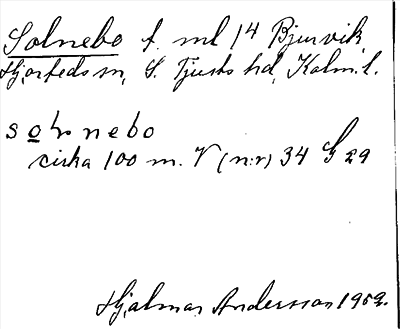 Solnebo t. ml 1⁴ Bjurvik
Hjorteds sn, S. Tjusts hd, Kalm. l.
solnebo
cirka 100 m. V (n:r) 34 G 29
Hjalmar Andersson 1959.